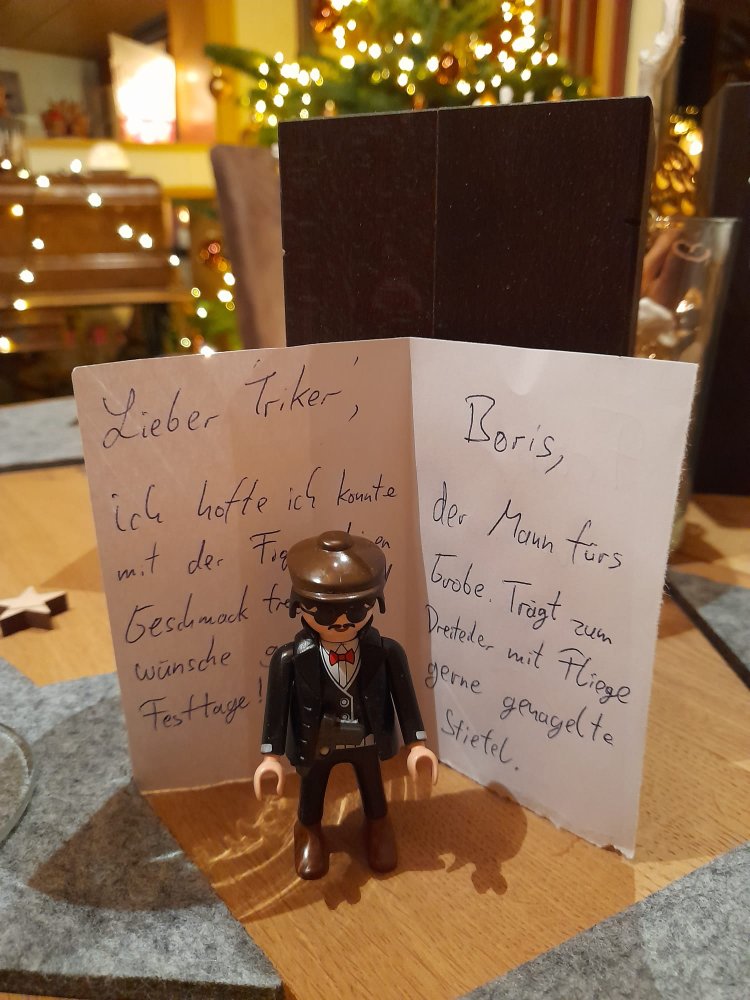 Lieber 'Triker',
ich hoffe ich konnte
mit der
Geschmack
wünsche
Festtage!
Boris,
der Mann fürs
Grobe. Trägt zum
Dreiteiler mit Fliege
gerne genagelte
Stiefel.